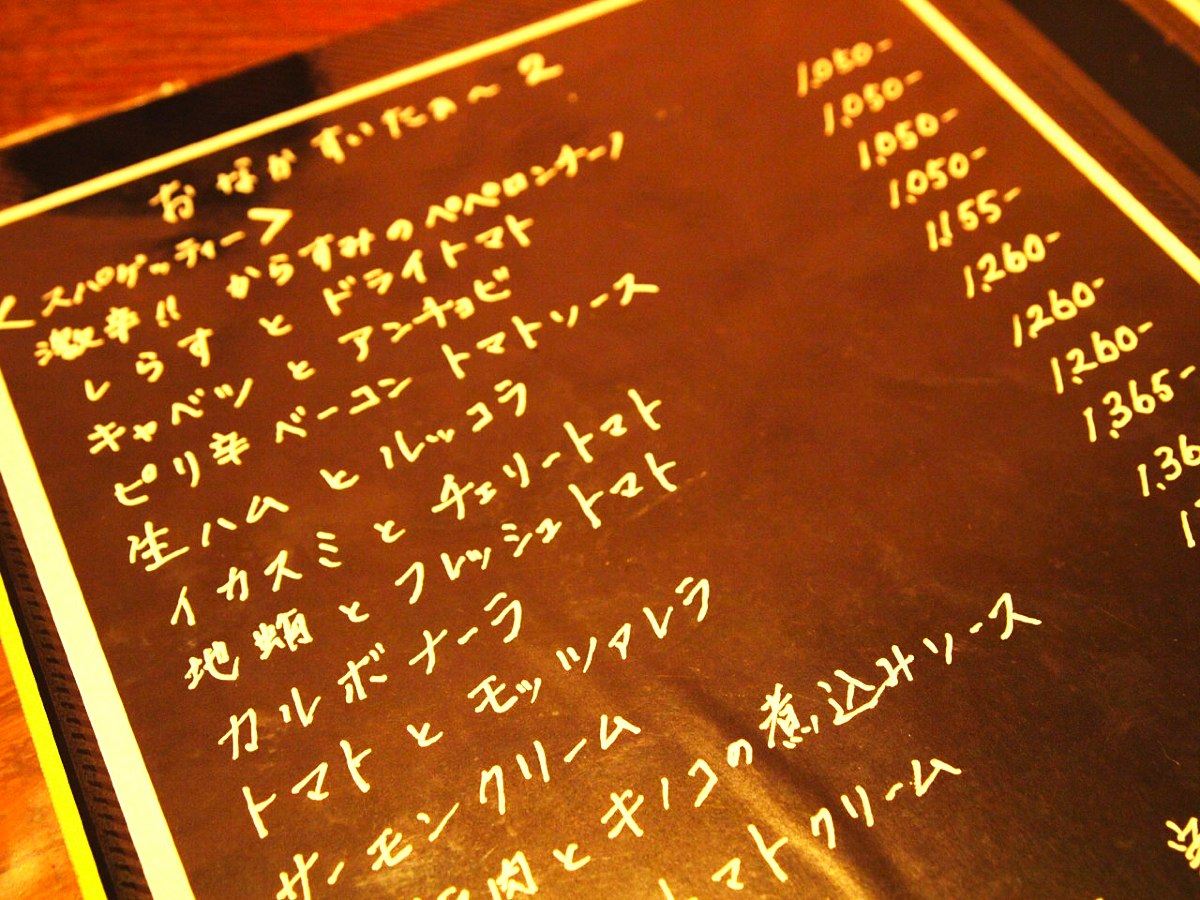 おなかすいたぁ〜 2
<スパゲッティー>
激辛!! からすみのペペロンチーノ 1,050-
しらすとドライトマト 1,050-
キャベツとアンチョビ 1,050-
ピリ辛ベーコントマトソース 1,050-
生ハムとルッコラ 1,155-
イカスミとチェリートマト 1,260-
地蛸とフレッシュトマト 1,260-
カルボナーラ 1,260-
トマトとモッツァレラ 1,365-
サーモンクリーム 1,36
肉とキノコの煮込みソース
トマトクリーム